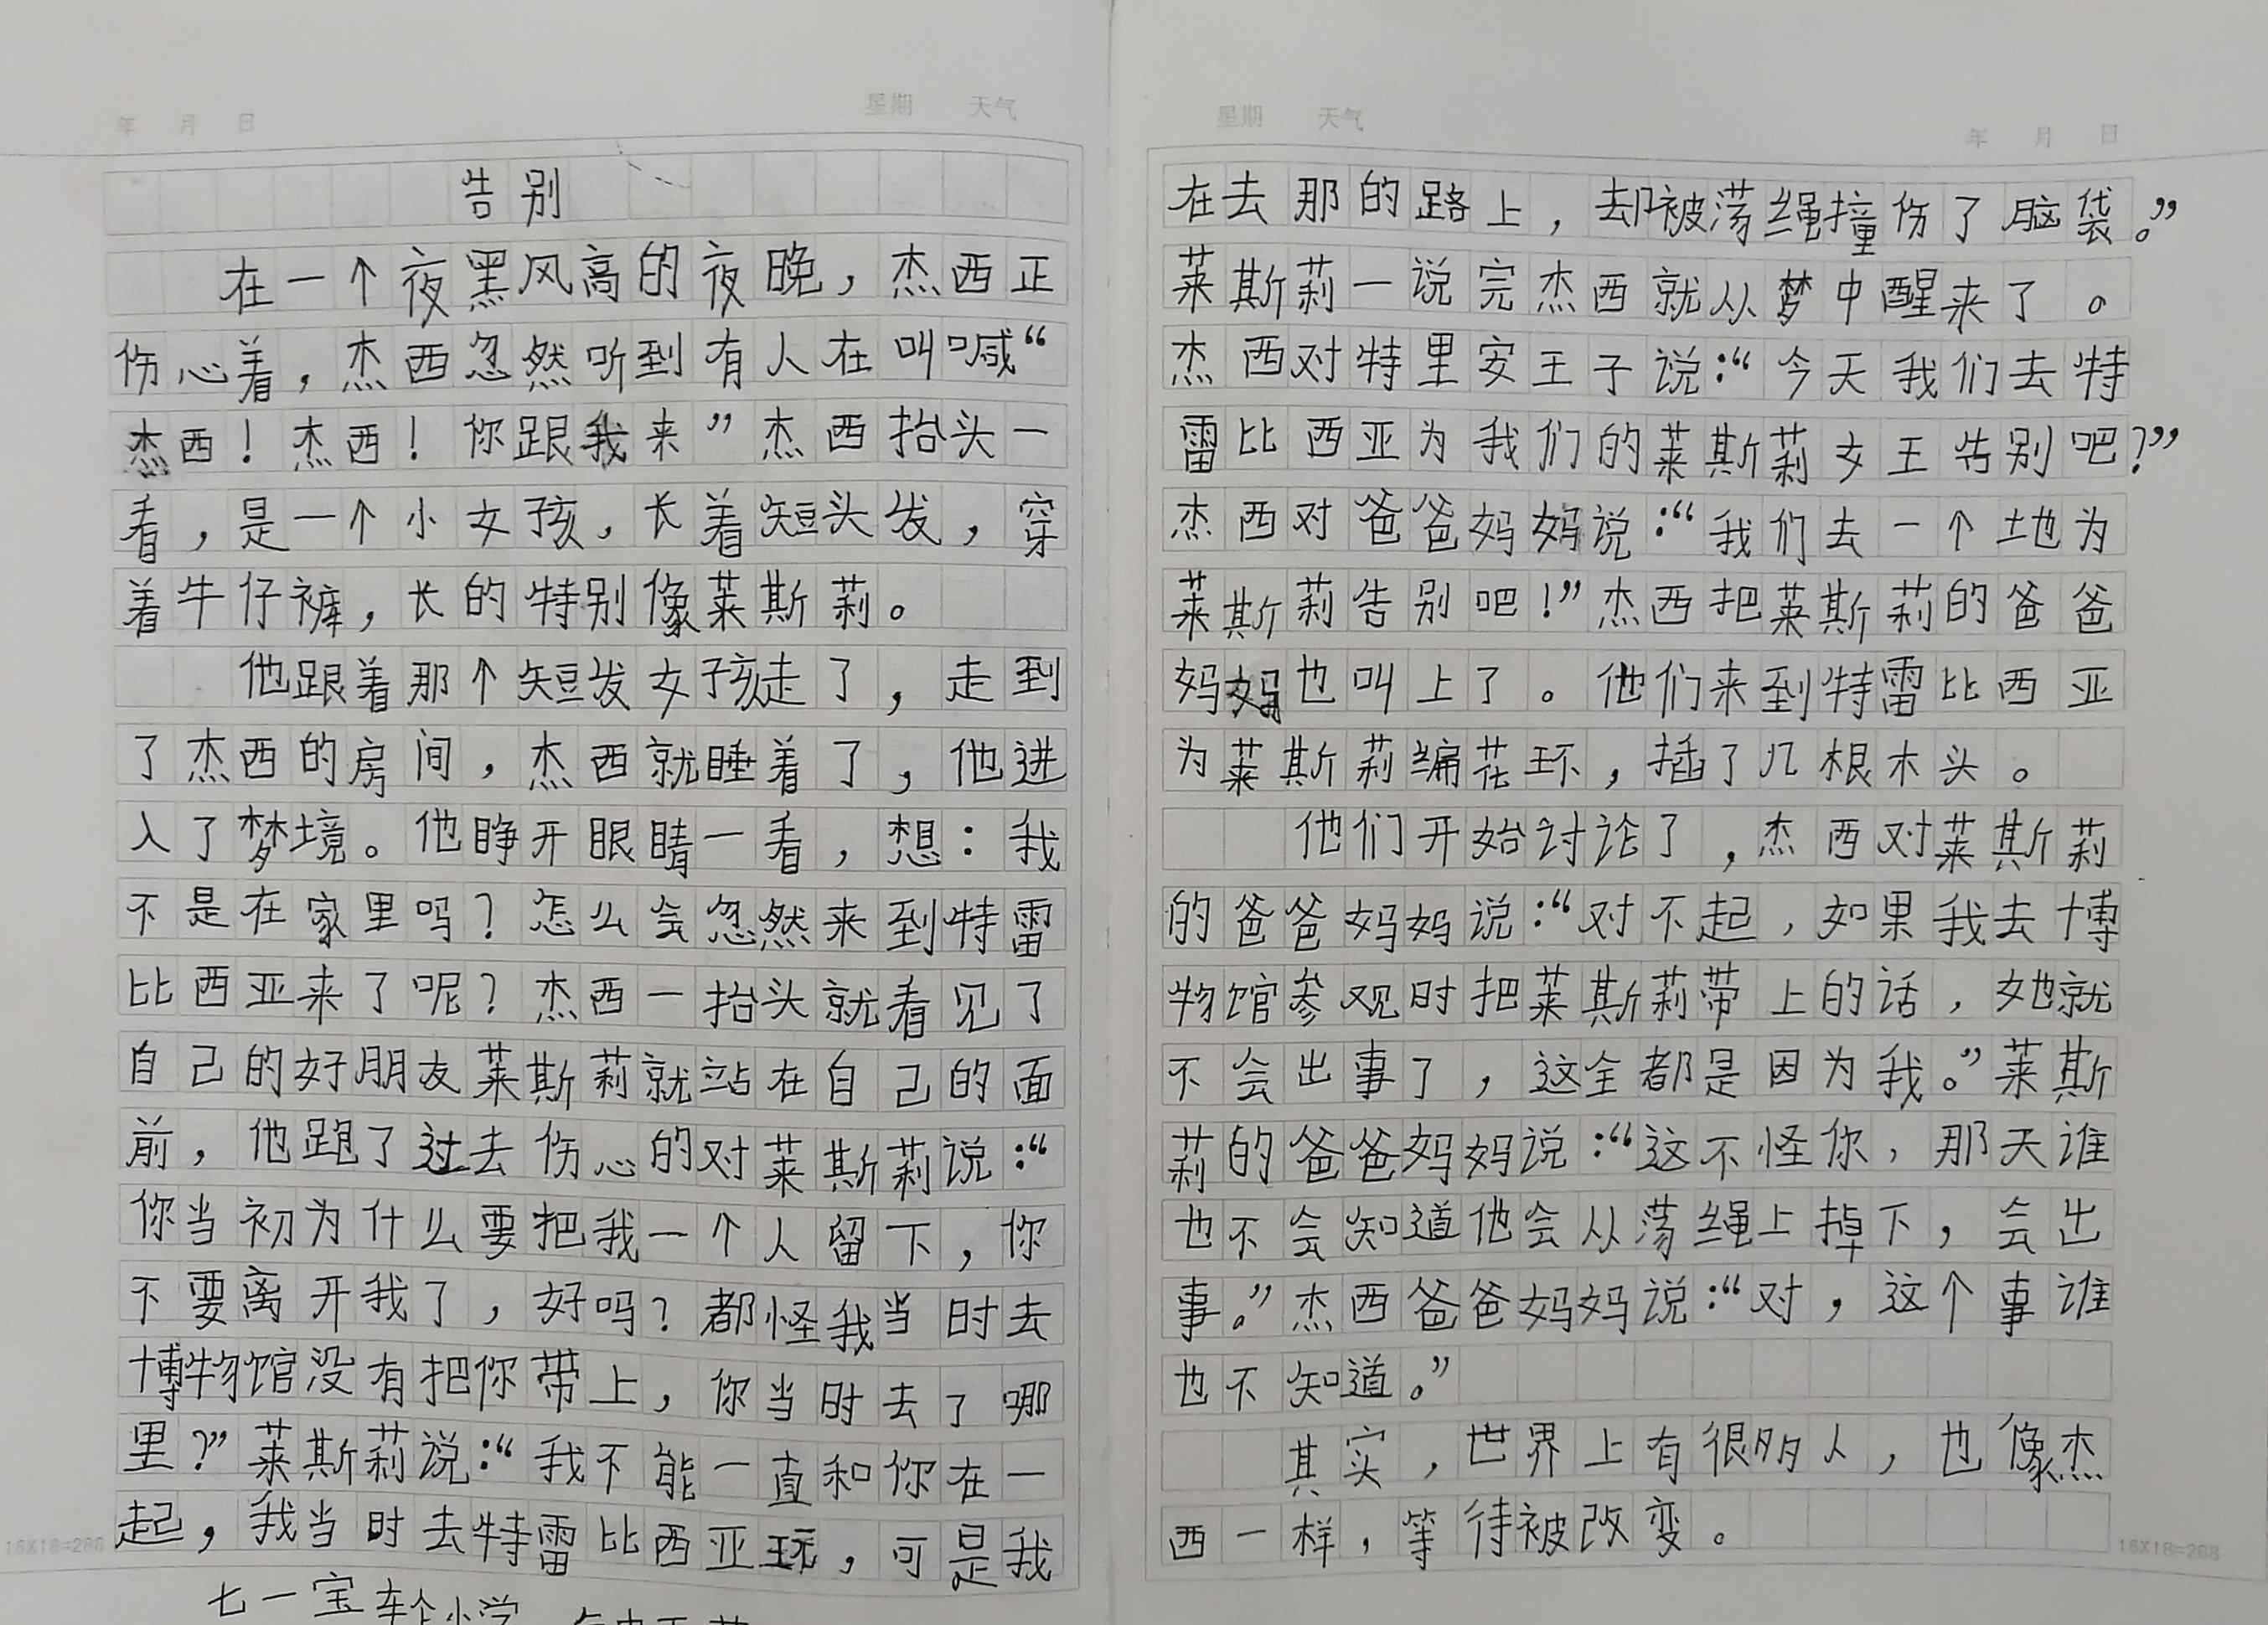 年 月 日 星期 天气
告别
在一个夜黑风高的夜晚，杰西正
伤心着，杰西忽然听到有人在叫喊“
杰西！杰西！你跟我来”杰西抬头一
看，是一个小女孩，长着短头发，穿
着牛仔裤，长的特别像莱斯莉。
他跟着那个短发女孩走了，走到
了杰西的房间，杰西就睡着了，他进
入了梦境。他睁开眼睛一看，想：我
不是在家里吗？怎么会忽然来到特雷
比西亚来了呢？杰西一抬头就看见了
自己的好朋友莱斯莉就站在自己的面
前，他跑了过去伤心的对莱斯莉说：“
你当初为什么要把我一个人留下，你
不要离开我了，好吗？都怪我当时去
博物馆没有把你带上，你当时去了哪
里？”莱斯莉说：“我不能一直和你在一
起，我当时去特雷比西亚玩，可是我
16X18=288
七一宝轮小学
星期 天气 年 月 日
在去那的路上，却被荡绳撞伤了脑袋。”
莱斯莉一说完杰西就从梦中醒来了。
杰西对特里安王子说：“今天我们去特
雷比西亚为我们的莱斯莉女王告别吧？”
杰西对爸爸妈妈说：“我们去一个地为
莱斯莉告别吧！”杰西把莱斯莉的爸爸
妈妈也叫上了。他们来到特雷比西亚
为莱斯莉编花环，插了几根木头。
他们开始讨论了，杰西对莱斯莉
的爸爸妈妈说：“对不起，如果我去博
物馆参观时把莱斯莉带上的话，她就
不会出事了，这全都是因为我。”莱斯
莉的爸爸妈妈说：“这不怪你，那天谁
也不会知道他会从荡绳上掉下，会出
事。”杰西爸爸妈妈说：“对，这个事谁
也不知道。”
其实，世界上有很多人，也像杰
西一样，等待被改变。
16X18=288